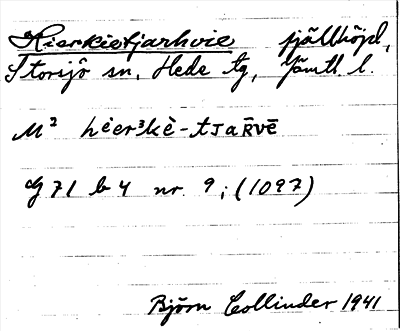 Hierkietjarhvie fjällhöjd,
Storsjö sn, Hede tg, Jämtl. l.
M² hèerᶟkè-tJaR̄vē
G 71 b 4 nr. 9; (1097)
Björn Collinder 1941